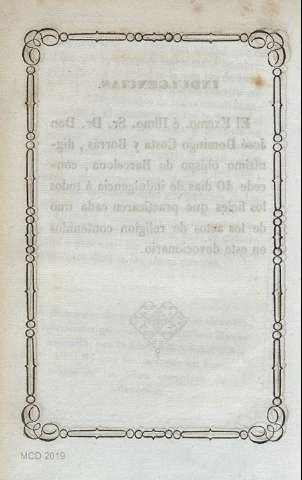 INDULGENCIAS.
El Excmo. é Illmo. Sr. Dr. Don
José Domingo Costa y Borrás, dig-
nísimo obispo de Barcelona, con-
cede 40 dias de indulgencia á todos
los fieles que practicaren cada uno
de los actos de religion contenidos
en este devocionario.
MCD 2019